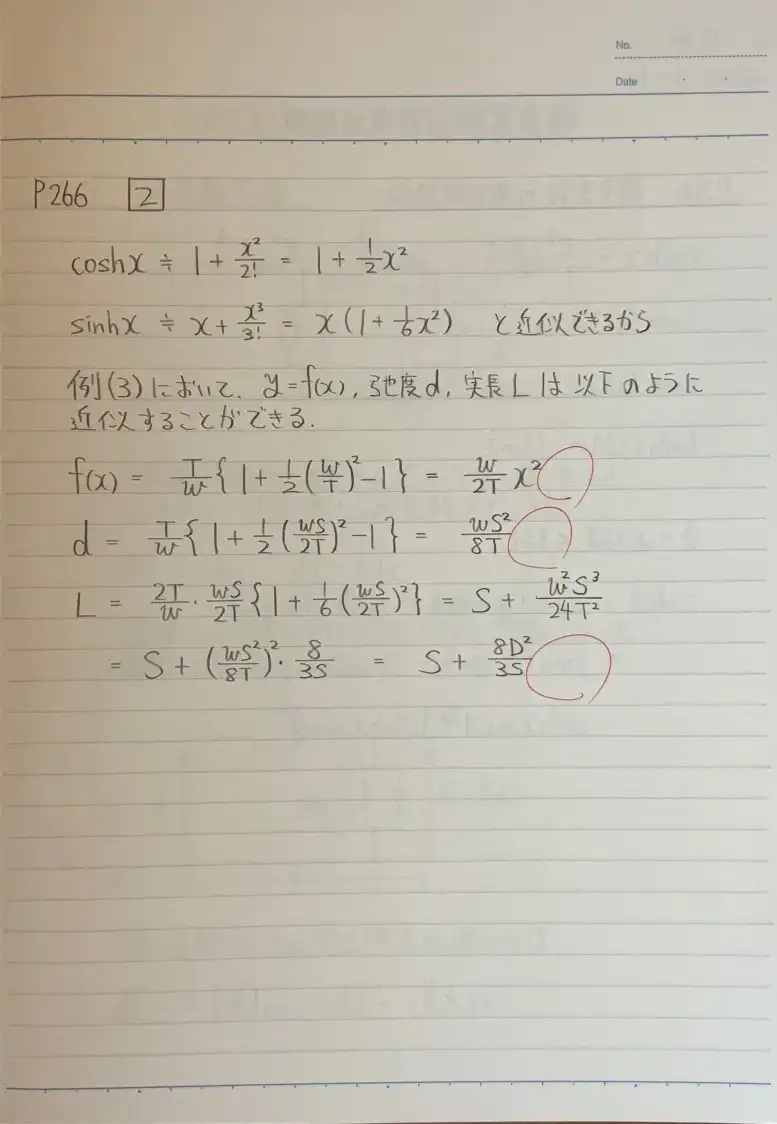 No.
Date
P266 2
coshx ≒ 1 + x²/2! = 1 + 1/2 x²
sinhx ≒ x + x³/3! = x(1 + 1/6 x²) と近似できるから
例(3)において、y=f(x), 弛度d, 実長Lは以下のように
近似することができる.
f(x) = T/w { 1 + 1/2 (w/T)² -1 } = w/2T x²
d = T/w { 1 + 1/2 (wS/2T)² -1 } = wS²/8T
L = 2T/w · wS/2T { 1 + 1/6 (wS/2T)² } = S + w²S³/24T²
= S + (wS²/8T)² · 8/3S = S + 8D²/3S